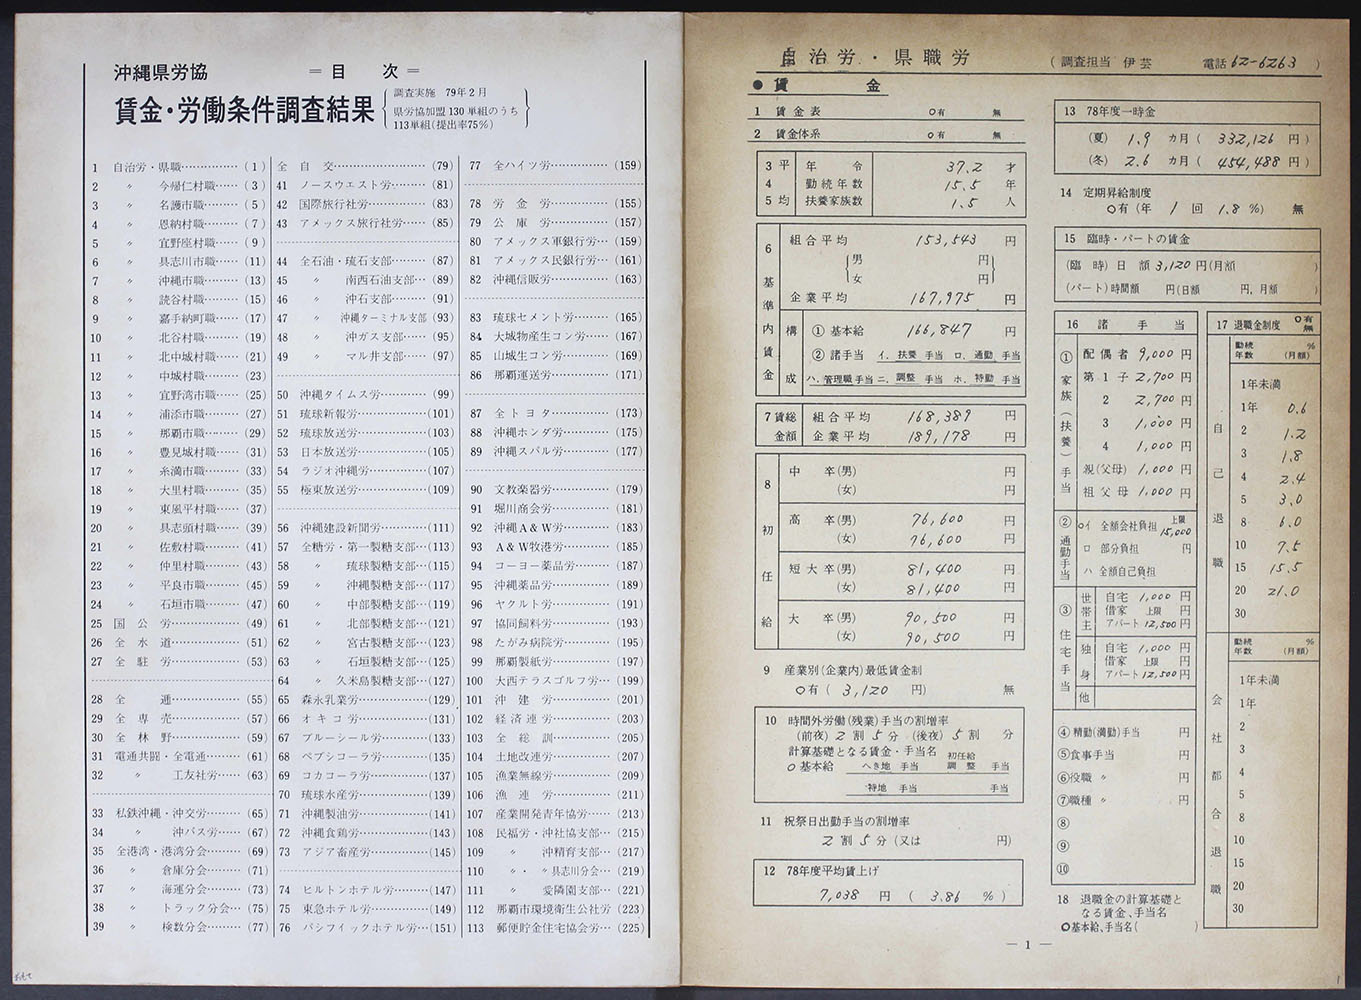 沖縄県労協 ＝目 次＝
賃金・労働条件調査結果
調査実施 79年2月
県労協加盟130単組のうち
113単組(提出率75％)
1 自治労・県職…………(1)
2 〃 今帰仁村職……(3)
3 〃 名護市職………(5)
4 〃 恩納村職………(7)
5 〃 宜野座村職……(9)
6 〃 具志川市職……(11)
7 〃 沖縄市職………(13)
8 〃 読谷村職………(15)
9 〃 嘉手納町職……(17)
10 〃 北谷村職………(19)
11 〃 北中城村職……(21)
12 〃 中城村職………(23)
13 〃 宜野湾市職……(25)
14 〃 浦添市職………(27)
15 〃 那覇市職………(29)
16 〃 豊見城村職……(31)
17 〃 糸満市職………(33)
18 〃 大里村職………(35)
19 〃 東風平村職……(37)
20 〃 具志頭村職……(39)
21 〃 佐敷村職………(41)
22 〃 仲里村職………(43)
23 〃 平良市職………(45)
24 〃 石垣市職………(47)
25 国公労……………(49)
26 全水道……………(51)
27 全駐労……………(53)
28 全逓………………(55)
29 全専売……………(57)
30 全林野……………(59)
31 電通共闘・全電通……(61)
32 〃 工友社労……(63)
33 私鉄沖縄・沖交労……(65)
34 〃 沖バス労……(67)
35 全港湾・港湾分会……(69)
36 〃 倉庫分会……(71)
37 〃 海運分会……(73)
38 〃 トラック分会…(75)
39 〃 検数分会……(77)
全自交………………(79)
41 ノースウエスト労………(81)
42 国際旅行社労…………(83)
43 アメックス旅行社労……(85)
44 全石油・琉石支部………(87)
45 〃 南西石油支部…(89)
46 〃 沖石支部………(91)
47 〃 沖縄ターミナル支部(93)
48 〃 沖ガス支部……(95)
49 〃 マル井支部……(97)
50 沖縄タイムス労………(99)
51 琉球新報労…………(101)
52 琉球放送労…………(103)
53 日本放送労…………(105)
54 ラジオ沖縄労………(107)
55 極東放送労…………(109)
56 沖縄建設新聞労……(111)
57 全糖労・第一製糖支部…(113)
58 〃 琉球製糖支部…(115)
59 〃 沖縄製糖支部…(117)
60 〃 中部製糖支部…(119)
61 〃 北部製糖支部…(121)
62 〃 宮古製糖支部…(123)
63 〃 石垣製糖支部…(125)
64 〃 久米島製糖支部…(127)
65 森永乳業労…………(129)
66 オキコ労……………(131)
67 ブルーシール労……(133)
68 ペプシコーラ労……(135)
69 コカコーラ労………(137)
70 琉球水産労…………(139)
71 沖縄製油労…………(141)
72 沖縄食鶏労…………(143)
73 アジア畜産労………(145)
74 ヒルトンホテル労……(147)
75 東急ホテル労………(149)
76 パシフイックホテル労…(151)
77 全ハイツ労…………(159)
78 労金労……………(155)
79 公庫労……………(157)
80 アメックス軍銀行労…(159)
81 アメックス民銀行労…(161)
82 沖縄信販労…………(163)
83 琉球セメント労……(165)
84 大城物産生コン労…(167)
85 山城生コン労………(169)
86 那覇運送労…………(171)
87 全トヨタ……………(173)
88 沖縄ホンダ労………(175)
89 沖縄スバル労………(177)
90 文教楽器労…………(179)
91 堀川商会労…………(181)
92 沖縄A＆W労………(183)
93 A＆W牧港労………(185)
94 コーヨー薬品労……(187)
95 沖縄薬品労…………(189)
96 ヤクルト労…………(191)
97 協同飼料労…………(193)
98 たがみ病院労………(195)
99 那覇製紙労…………(197)
100 大西テラスゴルフ労…(199)
101 沖建労……………(201)
102 経済連労…………(203)
103 全総訓……………(205)
104 土地改連労………(207)
105 漁業無線労………(209)
106 漁連労……………(211)
107 産業開発青年協労……(213)
108 民福労・沖社協支部…(215)
109 〃 沖精育支部…(217)
110 〃・〃具志川分会…(219)
111 〃 愛隣園支部…(221)
112 那覇市環境衛生公社労(223)
113 郵便貯金住宅協会労…(225)
自治労・県職労 (調査担当 伊芸 電話 62-6263)
●賃金
1 賃金表 ○有 無
2 賃金体系 ○有 無
3 平 年令 37.2 才
4 勤続年数 15.5 年
5 均 扶養家族数 1.5 人
6 基準内賃金
組合平均 153,543 円
男 円
女 円
企業平均 167,975 円
構成 ① 基本給 166,847 円
② 諸手当 イ、扶養 手当 ロ、通勤 手当
ハ、管理職手当 ニ、調整 手当 ホ、特勤 手当
7 賃総 組合平均 168,389 円
金額 企業平均 189,178 円
8 初任給
中卒(男) 円
(女) 円
高卒(男) 76,600 円
(女) 76,600 円
短大卒(男) 81,400 円
(女) 81,400 円
大卒(男) 90,500 円
(女) 90,500 円
9 産業別(企業内)最低賃金制
○有( 3,120 円) 無
10 時間外労働(残業)手当の割増率
(前夜) 2 割 5 分 (後夜) 5 割 分
計算基礎となる賃金・手当名
○基本給 へき地 手当 初任給調整 手当
特地 手当 手当
11 祝祭日出勤手当の割増率
2 割 5 分(又は 円)
12 78年度平均賃上げ
7,038 円 ( 3.86 ％)
13 78年度一時金
(夏) 1.9 カ月( 332,126 円)
(冬) 2.6 カ月( 454,488 円)
14 定期昇給制度
○有(年 1 回 1.8 ％) 無
15 臨時・パートの賃金
(臨時)日額 3,120 円(月額 )
(パート)時間額 円(日額 円、月額 )
16 諸手当
①家族(扶養)手当
配偶者 9,000 円
第1子 2,700 円
2 2,700 円
3 1,000 円
4 1,000 円
親(父母) 1,000 円
祖父母 1,000 円
②通勤手当
○イ 全額会社負担 上限 15,000
ロ 部分負担 円
ハ 全額自己負担
③住宅手当
世帯主 自宅 1,000 円
借家 上限 円
アパート 12,500円
独身 自宅 1,000 円
借家 上限 円
アパート 12,500円
他
④精勤(満勤)手当 円
⑤食事手当 円
⑥役職 〃 円
⑦職種 〃 円
⑧
⑨
⑩
17 退職金制度 ○有 無
自己退職
勤続年数 ％(月額)
1年未満
1年 0.6
2 1.2
3 1.8
4 2.4
5 3.0
8 6.0
10 7.5
15 15.5
20 21.0
30
会社都合退職
勤続年数 ％(月額)
1年未満
1年
2
3
4
5
8
10
15
20
30
18 退職金の計算基礎と
なる賃金、手当名
○基本給、手当名( )
— 1 —
1